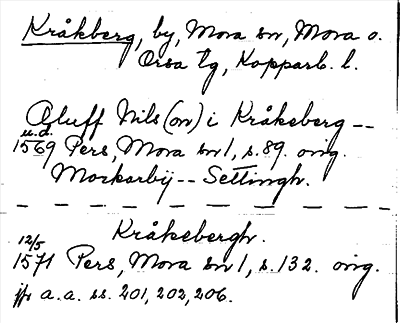 Kråkberg, by, Mora sn, Mora o.
Orsa tg, Kopparb. l.
Oluff Nils(on) i Kråkeberg --
u.d.
1569 Pers, Mora sn 1, s. 89. orig.
Morkarby -- Settingh.
Kråkebergh.
12/5
1571 Pers, Mora sn 1, s. 132. orig.
jfr a. a. ss. 201, 202, 206.